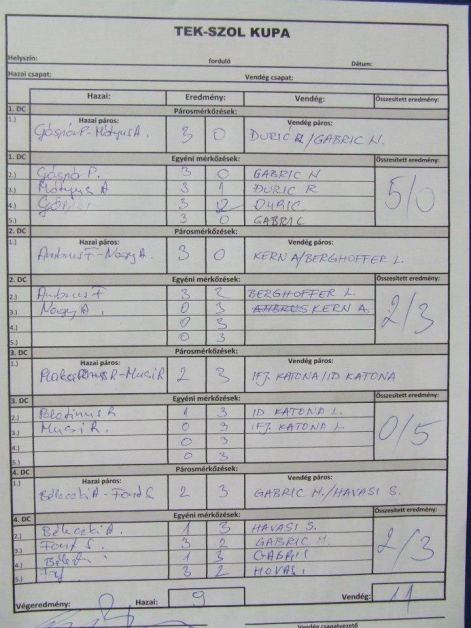 TEK-SZOL KUPA
Helyszín: forduló Dátum:
Hazai csapat: Vendég csapat:
Hazai: Eredmény: Vendég: Összesített eredmény:
1. DC Párosmérkőzések:
1.) Hazai páros: Vendég páros:
Gáspár P - Mátyus A. 3 0 DURIĆ R/GABRIC N.
1. DC Egyéni mérkőzések: Összesített eredmény:
2.) Gáspár P. 3 0 GABRIC N 5/0
3.) Mátyus A 3 1 DURIC R
4.) Gáspár 3 2 DURIC
5.) 3 0 GABRIC
2. DC Párosmérkőzések:
1.) Hazai páros: Vendég páros:
Ambrus F - Nagy A. 3 0 KERN A/BERGHOFFER L.
2. DC Egyéni mérkőzések: Összesített eredmény:
2.) Ambrus F 3 2 BERGHOFFER L. 2/3
3.) Nagy A. 0 3 KERN A.
4.) 0 3
5.) 0 3
3. DC Párosmérkőzések:
1.) Hazai páros: Vendég páros:
R - Mucsi R 2 3 IFJ. KATONA/ID KATONA
3. DC Egyéni mérkőzések: Összesített eredmény:
2.) R 1 3 ID KATONA L. 0/5
3.) Mucsi R. 0 3 IFJ. KATONA L.
4.) 0 3
5.) 0 3
4. DC Párosmérkőzések:
1.) Hazai páros: Vendég páros:
A - S 2 3 GABRIC M./HAVASI S.
4. DC Egyéni mérkőzések: Összesített eredmény:
2.) A. 1 3 HAVASI S. 2/3
3.) S. 3 2 GABRIC M.
4.) 1 3 GABRIC
5.) 3 2 HOVASI
Végeredmény: Hazai: 9 Vendég: 11
Vendég csapatvezető